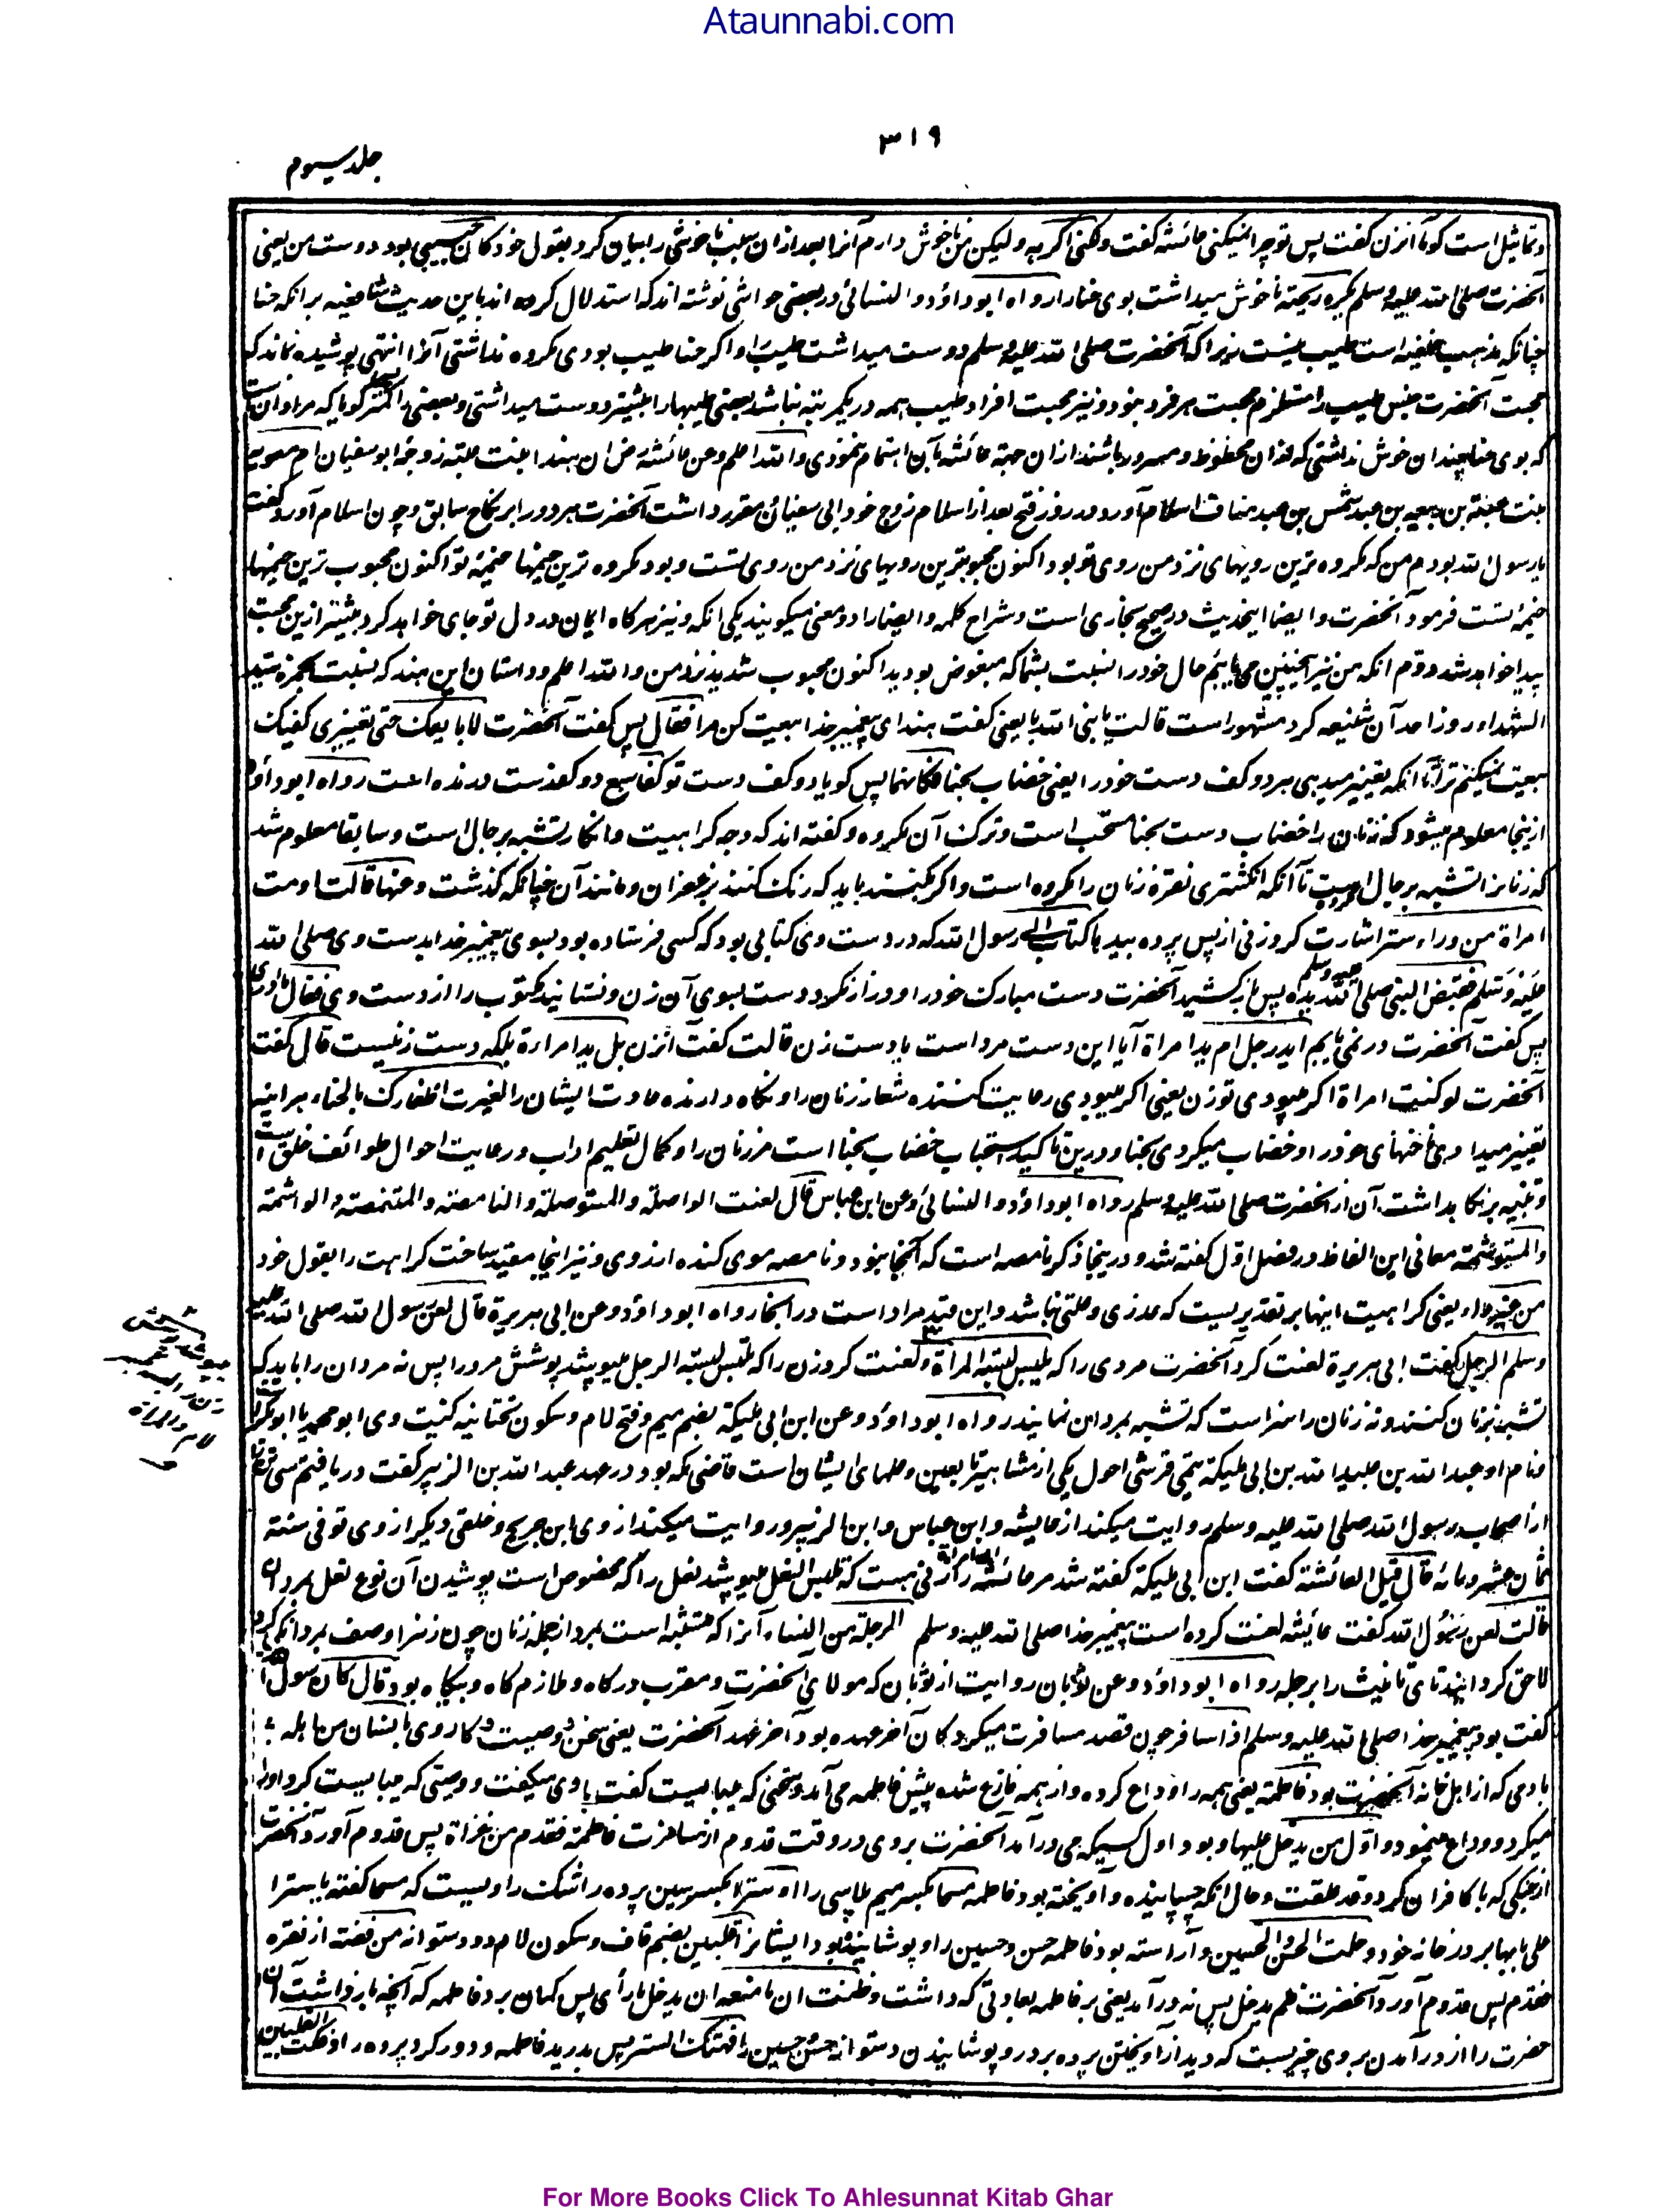 Ataunnabi.com
۳۱۹
جلد سیوم
وتماثیل است گویا آنزن گفت پس تو چرا نمیکنی عائشه گفت ولکنی اکرهه ولیکن من ناخوش دارم آنرا بعد ازان سبب ناخوشی را بیان کرد بقول خود کان حبیبی بود دوست من یعنی
آنحضرت صلی الله علیه وسلم یکره ریحته ناخوش میداشت بوی حنا را رواه ابوداؤد والنسائی ودر بعضی حواشی نوشته اند که استدلال کرده اند باین حدیث شافعیه بر آنکه حنا
چنانکه مذهب حنفیه است طیب نیست زیرا که آنحضرت صلی الله علیه وسلم دوست میداشت طیب را واگر حنا طیب بودی مکروه نداشتی آنرا انتهی پوشیده نماند که
محبت آنحضرت جنس طیب را مستلزم محبت هر فرد نبود ونیز محبت افراد طیب همه در یکمرتبه نباشد بعضی طیبها را بیشتر دوست میداشتی وبعضی را کمتر گویا که مراد آن است
که بوی حنا چندان خوش نداشتی که ازان محظوظ ومسرور باشند ازان جهة عائشه بآن اهتمام ننمودی والله اعلم وعن عائشه رض ان هندا بنت عتبه زوجۀ ابو سفیان ام معویه
بنت عتبة بن ربیعه بن عبد شمس بن عبد مناف اسلام آورد در روز فتح بعد از اسلام زوج خود ابی سفیان مقرر داشت آنحضرت هر دو را بر نکاح سابق وچون اسلام آورد گفت
یا رسول الله بودم من که مکروه ترین رویهای نزد من روی تو بود اکنون محبوبترین رویهای نزد من روی تست وبود مکروه ترین خیمها خیمۀ تو اکنون محبوب ترین خیمها
خیمۀ تست فرمود آنحضرت وایضا اینحدیث در صحیح بخاری است وشراح کلمه وایضا را دو معنی میگویند یکی آنکه ونیز هرگاه ایمان در دل تو جای خواهد کرد بیشتر ازین محبت
پیدا خواهد شد دوم آنکه من نیز همچنین می یابم حال خود را نسبت بشما که مبغوض بودید اکنون محبوب شدید نزد من والله اعلم وداستان این هند که نسبت بحمزه سید
الشهداء روز احد آن شنیعه کرد مشهور است قالت یا نبی الله بایعنی گفت هند ای پیغمبر خدا بیعت کن مرا فقال پس گفت آنحضرت لا ابایعک حتی تغیری کفیک
بیعت نمیکنم ترا تا آنکه تغییر میدهی هر دو کف دست خود را یعنی خضاب بحنا فکانهما پس گویا دو کف دست تو کفا سبع دو کف دست درنده است رواه ابوداؤد
ازینجا معلوم میشود که زنان را خضاب دست بحنا مستحب است وترک آن مکروه وگفته اند که وجه کراهیت وانکار تشبه برجال است وسابقا معلوم شد
که زنانرا تشبه برجال مکروه است تا آنکه انگشتری نقره زنان را مکروه است واگر بکنند باید که رنگ کنند بزعفران ومانند آن چنانکه گذشت وعنها قالت اومت
امراة من وراء ستر اشارت کرد زنی از پس پرده بید ها کتاب الی رسول الله که در دست وی کتابی بود که کسی فرستاده بود بسوی پیغمبر خدا بدست وی صلی الله
علیه وسلم فقبض النبی صلی الله علیه وسلم یده پس باز کشید آنحضرت دست مبارک خود را ودراز نکرد دست بسوی آن زن ونستانید مکتوب را از دست وی فقال ما ادری
پس گفت آنحضرت در نمی یابم اید رجل ام ید امراة آیا این دست مرد است یا دست زن قالت گفت آنزن بل ید امراة بلکه دست زنیست قال گفت
آنحضرت لو کنت امراة اگر میبودی تو زن یعنی اگر میبودی رعایت کننده شعار زنان را ونگاه دارنده عادت ایشان را لغیرت اظفارک بالحناء هر آئینه
تغییر میدادی ناخنهای خود را وخضاب میکردی بحنا ودرین تاکید استحباب خضاب بحنا است مر زنان را وکمال تعلیم اداب ورعایت احوال طوائف خلق است
وتنبیه بر نگاهداشت آن از آنحضرت صلی الله علیه وسلم رواه ابوداؤد والنسائی وعن ابن عباس قال لعنت الواصلة والمستوصلة والنامصة والمتنمصة والواشمة
والمستوشمة معانی این الفاظ در فصل اول گفته شد ودرینجا ذکر نامصه است که آنجا نبود ونامصه موی کننده از روی ونیز اینجا مقید ساخت کراهت را بقول خود
من غیر داء یعنی کراهیت اینها بر تقدیریست که عذری وعلتی نباشد واین قید مراد است در آنجا رواه ابوداؤد وعن ابی هریرة قال لعن رسول الله صلی الله علیه
وسلم الرجل گفت ابی هریرة لعنت کرد آنحضرت مردی را که یلبس لبسة المرأة ولعنت کرد زن را که تلبس لبسة الرجل میپوشد پوشش مرد را پس نه مردان را باید که
تشبه بزنان کنند ونه زنان را سزا است که تشبه بمردان نمایند رواه ابوداؤد وعن ابن ابی ملیکة بضم میم وفتح لام وسکون تحتانیه کنیت وی ابو محمد یا ابوبکر
ونام او عبدالله بن عبیدالله بن ابی ملیکة تیمی قرشی احول یکی از مشاهیر تابعین وعلمای ایشان است قاضی مکه بود در عهد عبدالله بن الزبیر گفت دریافتم سی تن را
از اصحاب رسول الله صلی الله علیه وسلم روایت میکند از عایشه وابن عباس وابن الزبیر وروایت میکند از وی ابن جریج وخلقی دیگر از وی توفی سنة
ثمان عشر ومائة قال قیل لعائشة گفت ابن ابی ملیکة گفته شد مر عائشه را ان امراة زنی هست که تلبس النعل میپوشد نعل را که مخصوص است پوشیدن آن نوع نعل بمردان
قالت لعن رسول الله گفت عائشه لعنت کرده است پیغمبر خدا صلی الله علیه وسلم الرجلة من النساء آنرا که متشبه است بمرد از جمله زنان چون زنرا وصف بمرد
لاحق گردانیدند تای تانیث را برجله رواه ابوداؤد وعن ثوبان روایت از ثوبان که مولای آنحضرت ومقرب درگاه وملازم گاه وبیگاه بود قال کان رسول الله
گفت بود پیغمبر خدا صلی الله علیه وسلم اذا سافر چون قصد مسافرت میکرد کان آخر عهده بود آخر عهد آنحضرت یعنی سخن ووصیت وکار وی بانسان من اهله
بآدمی که از اهل خانه آنحضرت بود فاطمة یعنی همه را وداع کرده واز همه فارغ شده پیش فاطمه می آمد وسخنی که میبایست گفت با وی میگفت ووصیتی که میبایست کرد او را
میکرد ووداع مینمود واول من یدخل علیها وبود اول کسیکه می در آمد آنحضرت بروی در وقت قدوم از مسافرت فاطمة فقدم من غزاة پس قدوم آورد آنحضرت
از جنگی که با کافران کرد وقد علقت وحال آنکه چسپانیده وآویخته بود فاطمه مسحا بکسر میم پلاسی را او سترا بکسر سین پرده را شک راویست که مسحا گفته یا سترا
علی بابها بر در خانه خود وحلت الحسن والحسین وآراسته بود فاطمه حسن وحسین را وپوشانیده بود ایشانرا قلبین بضم قاف وسکون لام دو دستوانه من فضة از نقره
فقدم پس قدوم آورد آنحضرت فلم یدخل پس نه در آمد یعنی بر فاطمه بعادتی که داشت وظنت ان ما منعه ان یدخل ما رأی پس گمان برد فاطمه که آنچه باز داشت آن
حضرت را از در آمدن بروی چیزیست که دید از آویختن پرده بر در وپوشانیدن دستوانه حسن وحسین را فهتکت الستر پس بدرید فاطمه ودور کرد پرده را وفکت القلبین
For More Books Click To Ahlesunnat Kitab Ghar